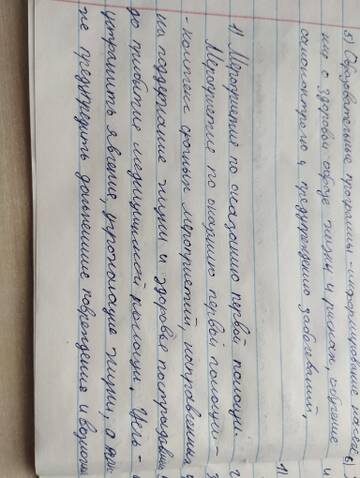 5) Образовательные программы - информирование
ния о здоровом образе жизни и рисках, обучение
самоконтролю и предупреждению заболеваний,
1) Мероприятия по оказанию первой помощи.
Мероприятия по оказанию первой помощи -
- комплекс срочных мероприятий, направленных
на поддержание жизни и здоровья пострадавших
до прибытие медицинской помощи. Цель -
устранить явления, угрожающие жизни, а так
же предупредить дальнейшие повреждения и
6)
и
1)